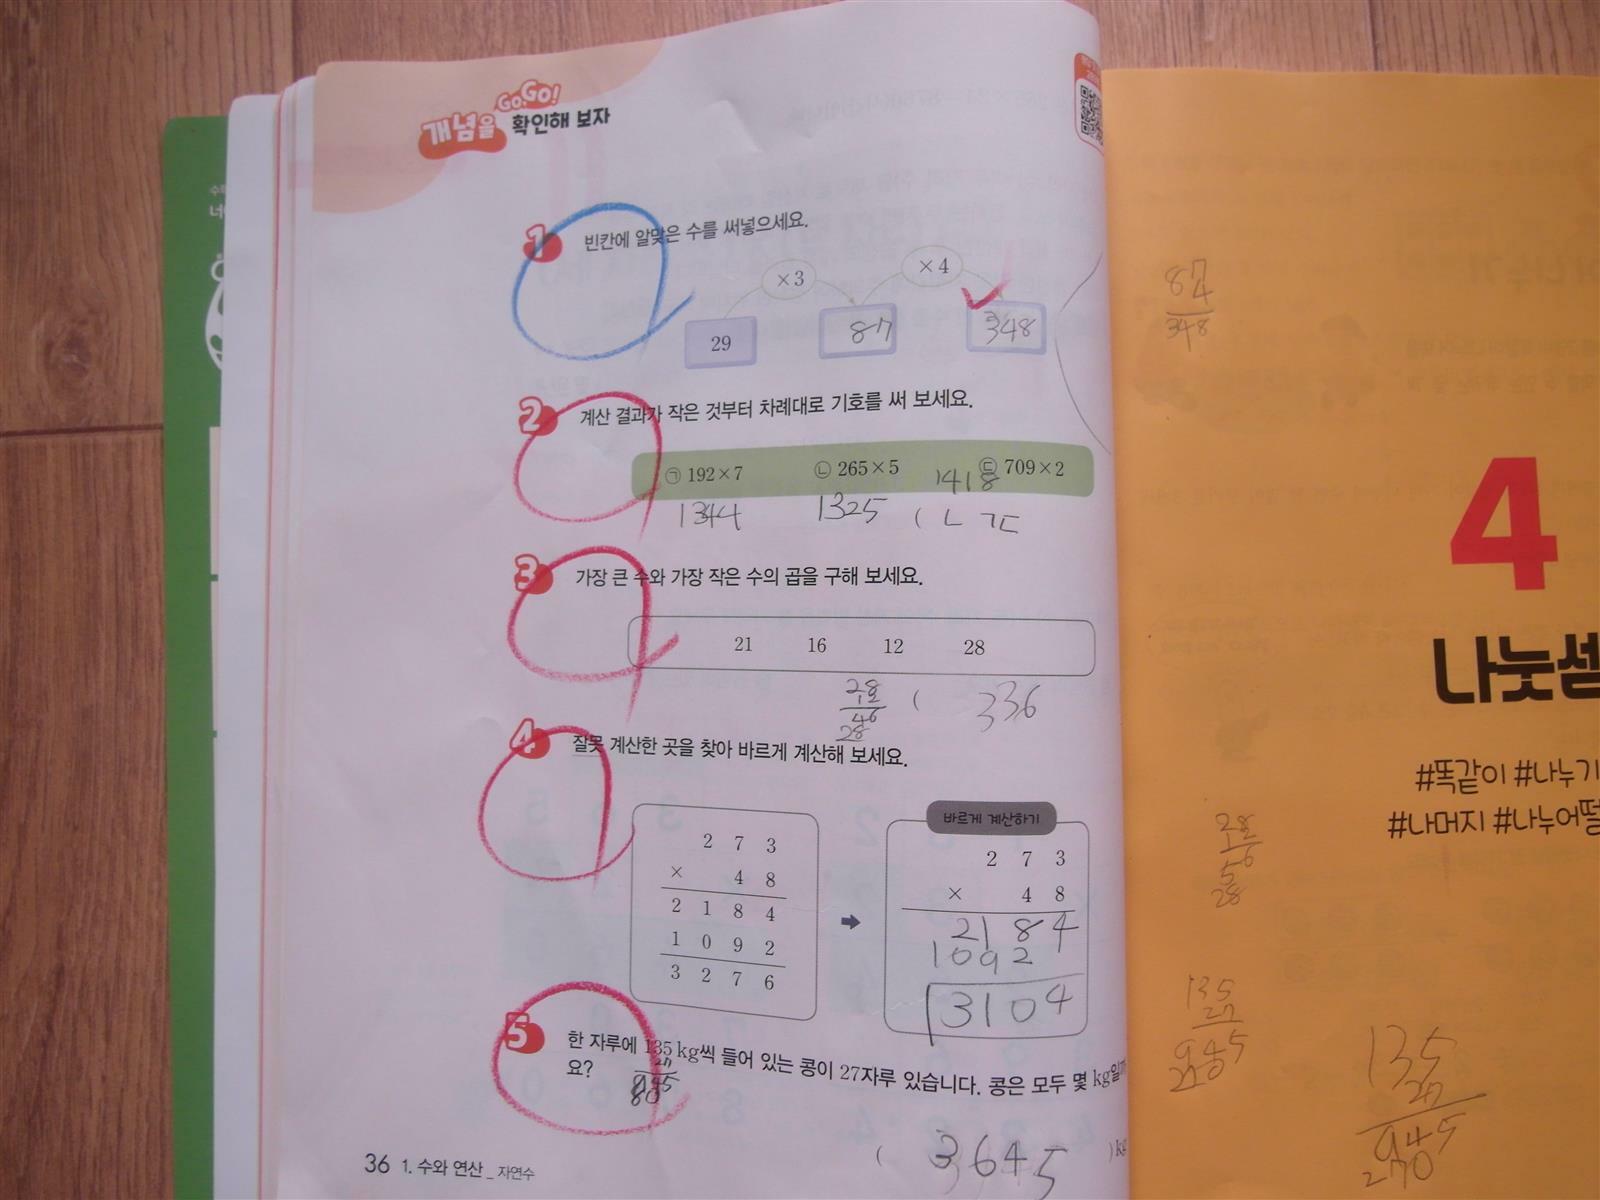 개념을 Go,Go! 확인해 보자
1 빈칸에 알맞은 수를 써넣으세요.
×3 ×4
29 87 348
2 계산 결과가 작은 것부터 차례대로 기호를 써 보세요.
㉠ 192×7 ㉡ 265×5 ㉢ 709×2
1418
1344 1325 ( ㄴ ㄱㄷ
3 가장 큰 수와 가장 작은 수의 곱을 구해 보세요.
21 16 12 28
( 336
28
4 잘못 계산한 곳을 찾아 바르게 계산해 보세요.
바르게 계산하기
2 7 3
× 4 8
2 1 8 4
1 0 9 2
3 2 7 6
2 7 3
× 4 8
2184
1092
13104
5 한 자루에 135 kg씩 들어 있는 콩이 27자루 있습니다. 콩은 모두 몇 kg일까
요?
27
( 3645 ) kg
36 1. 수와 연산 _ 자연수
87
4
348
4
나눗셈
#똑같이 #나누기
#나머지 #나누어떨
28
12
56
28
135
27
945
270
135
27
945
270